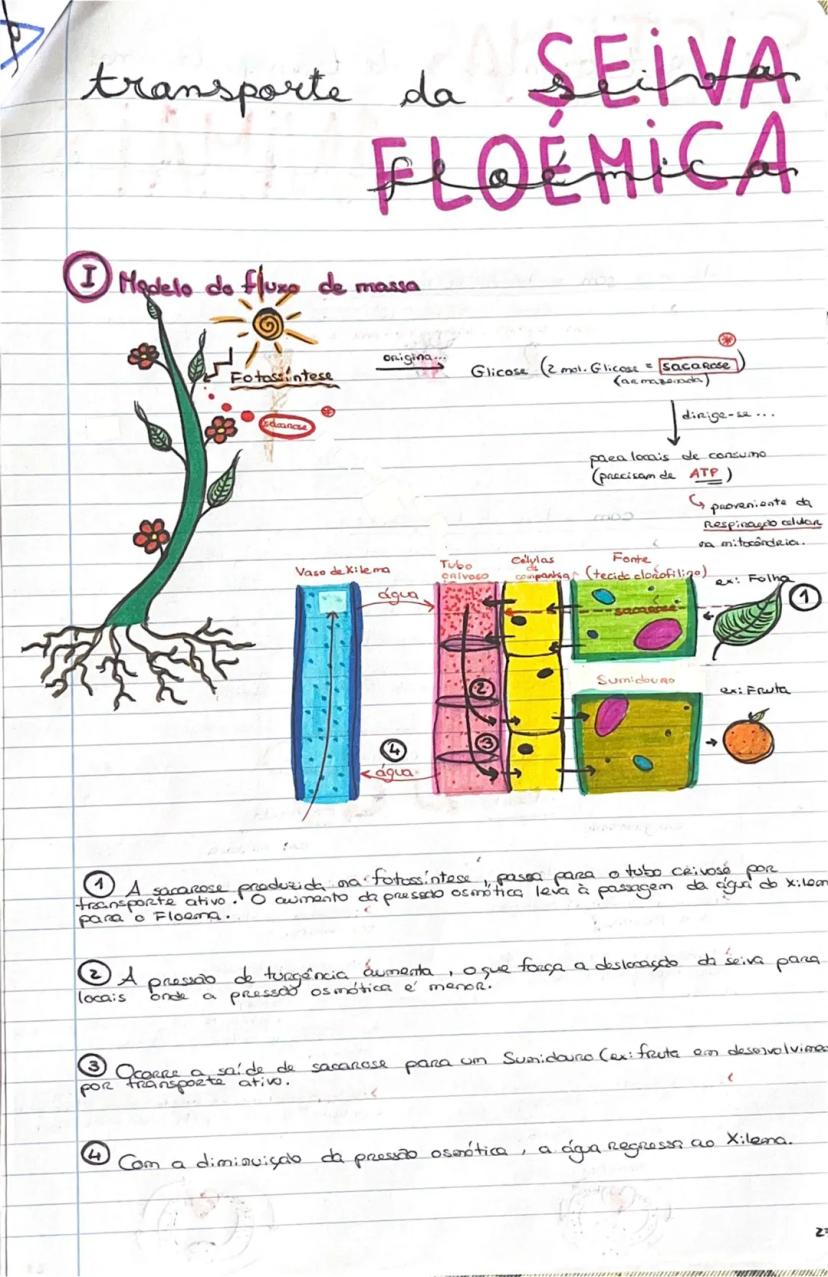 transporte da SEIVA seiva
FLOÉMICA floémica
I Modelo do fluxo de massa
Fotossíntese
sacarose
origina...
Glicose (2 mol. Glicose = sacarose)
(armazenada)
dirige-se...
para locais de consumo
(precisam de ATP)
proveniente da
Respiração celular
na mitocôndria.
Vaso de Xilema
Tubo
crivoso
Células
de
companhia
Fonte
(tecido clorofilino)
ex: Folha
água
sacarose
1
Sumidouro
ex: Fruta
2
3
4
água
1 A sacarose produzida na fotossíntese, passa para o tubo crivoso por
transporte ativo. O aumento da pressão osmótica leva à passagem da água do xilem
para o Floema.
2 A pressão de turgência aumenta, o que força a deslocação da seiva para
locais onde a pressão osmótica é menor.
3 Ocorre a saída de sacarose para um Sumidouro (ex: fruta em desenvolvime
por transporte ativo.
4 Com a diminuição da pressão osmótica, a água regressa ao Xilema.